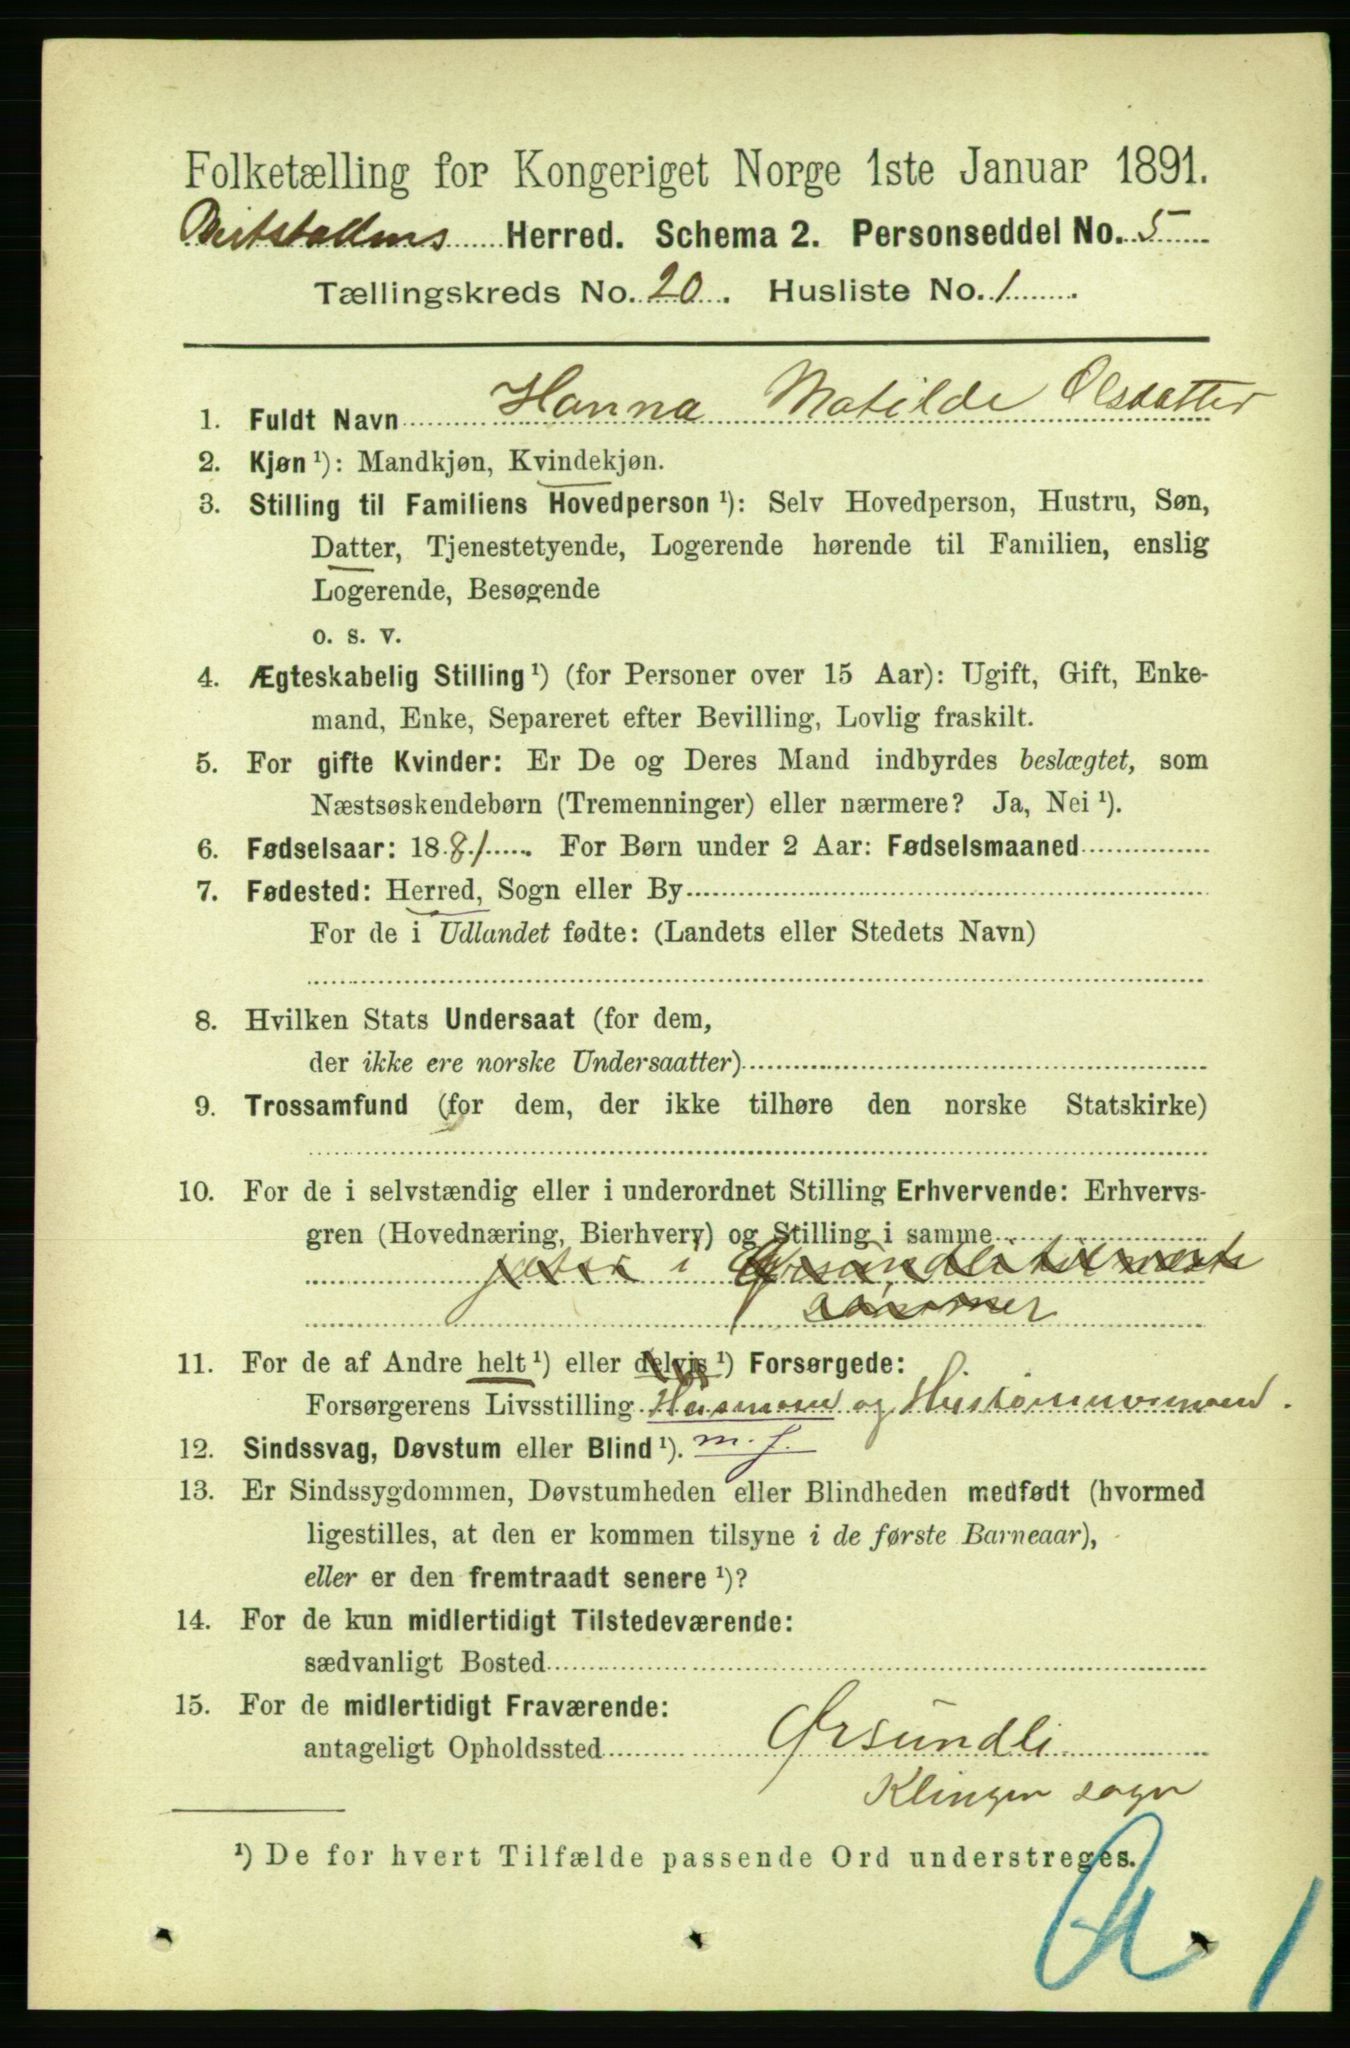 Folketælling for Kongeriget Norge 1ste Januar 1891.
Beitstadens Herred. Schema 2. Personseddel No. 5
Tællingskreds No. 20. Husliste No. 1
1. Fuldt Navn Hanna Matilde Olsdatter
2. Kjøn ¹): Mandkjøn, Kvindekjøn.
3. Stilling til Familiens Hovedperson ¹): Selv Hovedperson, Hustru, Søn,
Datter, Tjenestetyende, Logerende hørende til Familien, enslig
Logerende, Besøgende
o. s. v.
4. Ægteskabelig Stilling ¹) (for Personer over 15 Aar): Ugift, Gift, Enke-
mand, Enke, Separeret efter Bevilling, Lovlig fraskilt.
5. For gifte Kvinder: Er De og Deres Mand indbyrdes beslægtet, som
Næstsøskendebørn (Tremenninger) eller nærmere? Ja, Nei ¹).
6. Fødselsaar: 1881. For Børn under 2 Aar: Fødselsmaaned
7. Fødested: Herred, Sogn eller By
For de i Udlandet fødte: (Landets eller Stedets Navn)
8. Hvilken Stats Undersaat (for dem,
der ikke ere norske Undersaatter)
9. Trossamfund (for dem, der ikke tilhøre den norske Statskirke)
10. For de i selvstændig eller i underordnet Stilling Erhvervende: Erhvervs-
gren (Hovednæring, Bierhverv) og Stilling i samme
i Ørsundli til næste
sommer
11. For de af Andre helt ¹) eller delvis ¹) Forsørgede:
Forsørgerens Livsstilling Husmand og
12. Sindssvag, Døvstum eller Blind ¹). m. f.
13. Er Sindssygdommen, Døvstumheden eller Blindheden medfødt (hvormed
ligestilles, at den er kommen tilsyne i de første Barneaar),
eller er den fremtraadt senere ¹)?
14. For de kun midlertidigt Tilstedeværende:
sædvanligt Bosted
15. For de midlertidigt Fraværende:
antageligt Opholdssted Ørsundli
Klingen sogn
¹) De for hvert Tilfælde passende Ord understreges.